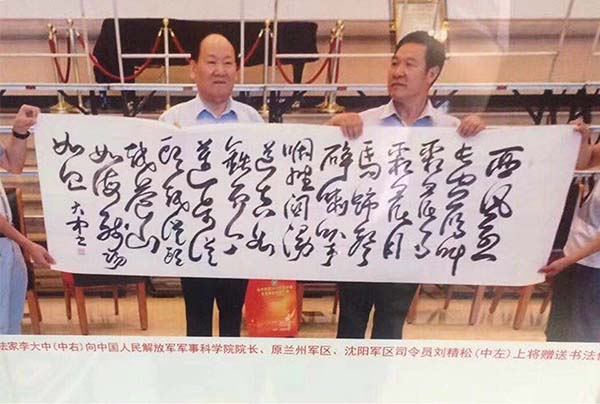 西風烈
長空雁叫
霜晨月
霜晨月
馬蹄聲
碎喇叭聲
咽雄關漫
道真如
鐵而今
邁步從
頭越從頭
越蒼山
如海殘陽
如血
大中書
法家李大中(中右)向中国人民解放军军事科学院院长、原兰州军区、沈阳军区司令员刘精松(中左)上将赠送书法